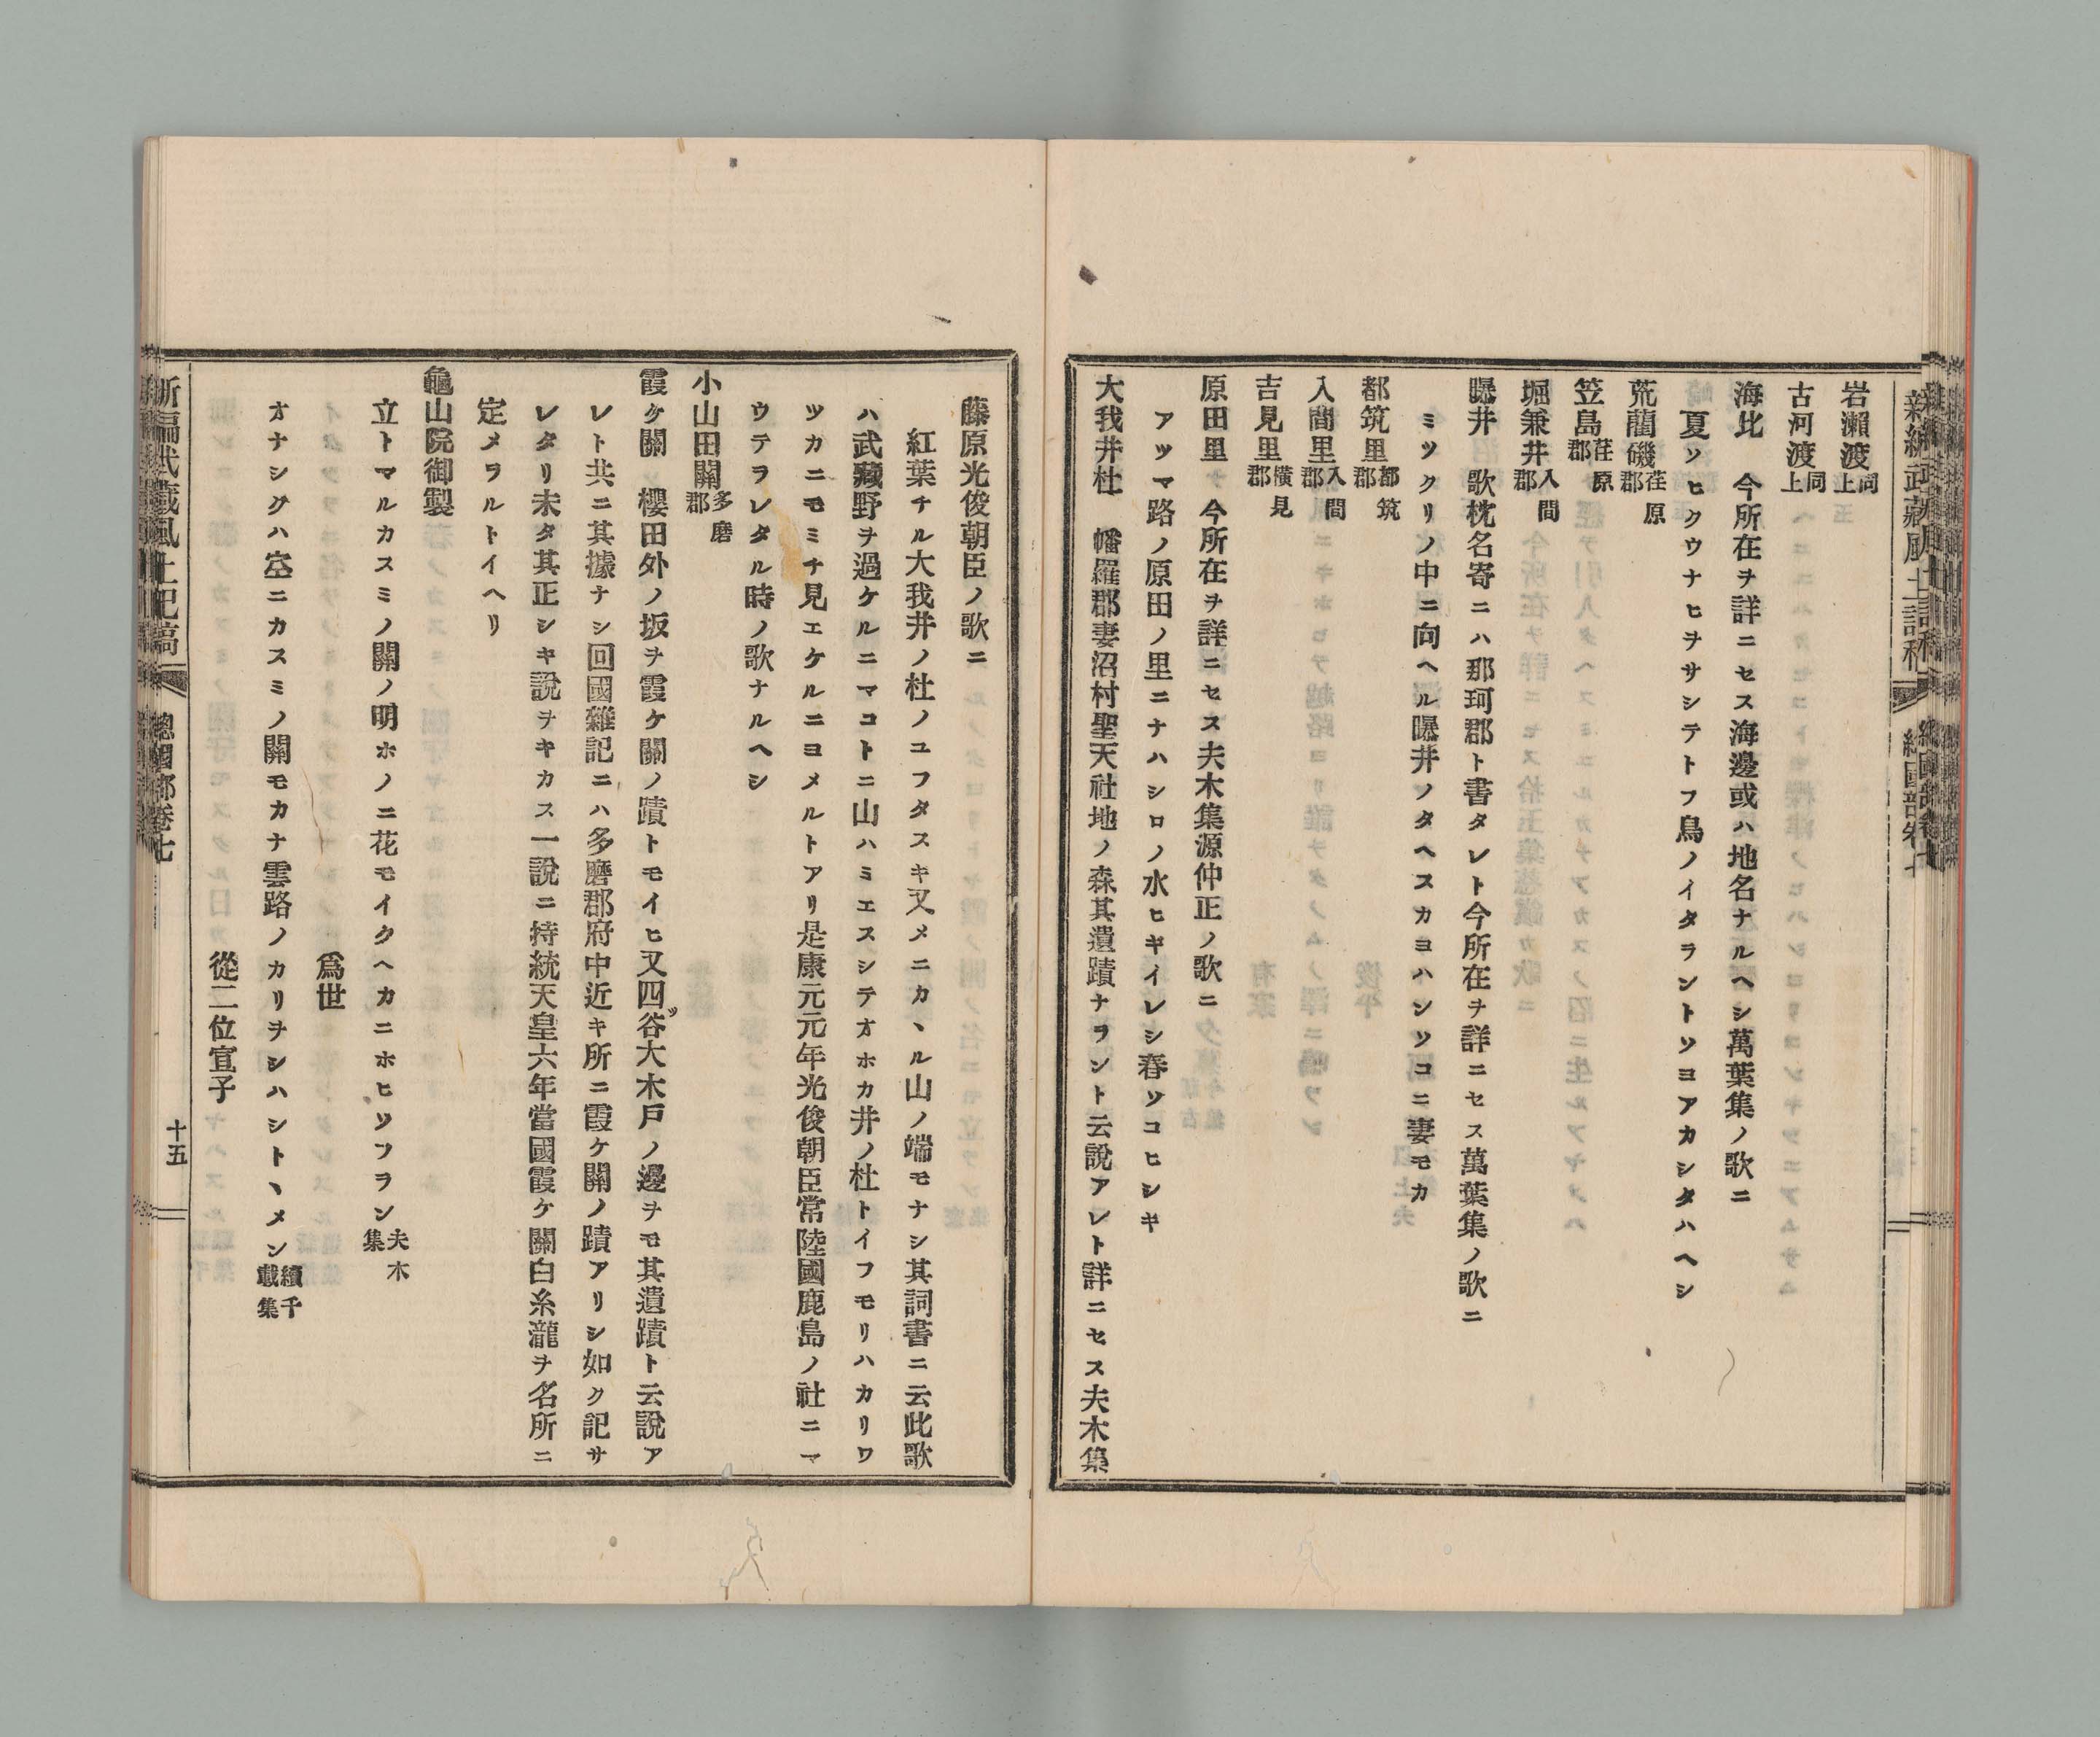 岩瀨渡同上
古河渡同上
海比　今所在ヲ詳ニセス海邊或ハ地名ナルヘシ萬葉集ノ歌ニ
夏ソヒクウナヒヲサシテトフ鳥ノイタラントソヨアカシタハヘシ
荒藺磯荏原郡
笠島荏原郡
堀兼井入間郡
曝井　歌枕名寄ニハ那珂郡ト書タレト今所在ヲ詳ニセス萬葉集ノ歌ニ
ミツクリノ中ニ向ヘル曝井ノタヘスカヨハンソコニ妻モカ
都筑里都筑郡
入間里入間郡
吉見里横見郡
原田里　今所在ヲ詳ニセス夫木集源仲正ノ歌ニ
アツマ路ノ原田ノ里ニナハシロノ水ヒキイレシ春ソコヒシキ
大我井杜　幡羅郡妻沼村聖天社地ノ森其遺蹟ナラント云説アレト詳ニセス夫木集
藤原光俊朝臣ノ歌ニ
紅葉チル大我井ノ杜ノユフタスキ又メニカヽル山ノ端モナシ其詞書ニ云此歌
ハ武藏野ヲ過ケルニマコトニ山ハミエスシテオホカ井ノ杜トイフモリハカリワ
ツカニモミチ見エケルニヨメルトアリ是康元元年光俊朝臣常陸國鹿島ノ社ニマ
ウテヲレタル時ノ歌ナルヘシ
小山田關多磨郡
霞ケ關　櫻田外ノ坂ヲ霞ケ關ノ蹟トモイヒ又四ッ谷大木戸ノ邊ヲモ其遺蹟ト云説ア
レト共ニ其據ナシ回國雜記ニハ多磨郡府中近キ所ニ霞ケ關ノ蹟アリシ如ク記サ
レタリ未タ其正シキ説ヲキカス一説ニ持統天皇六年當國霞ケ關白糸瀧ヲ名所ニ
定メヲルトイヘリ
龜山院御製
立トマルカスミノ關ノ明ホノニ花モイクヘカニホヒソフラン夫木集
爲世
オナシクハ空ニカスミノ關モカナ雲路ノカリヲシハシトヽメン續千載集
從二位宣子
新編武藏風土記稿　總國部卷七　十五